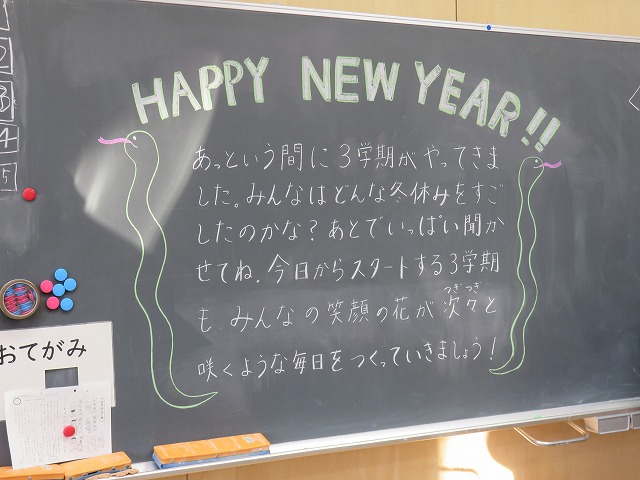 HAPPY NEW YEAR!!
あっという間に3学期がやってきま
した。みんなはどんな冬休みをすご
したのかな？あとでいっぱい聞か
せてね。今日からスタートする3学期
つぎつぎ
も、みんなの笑顔の花が次々と
咲くような毎日をつくっていきましょう！
2
3
4
5
おてがみ